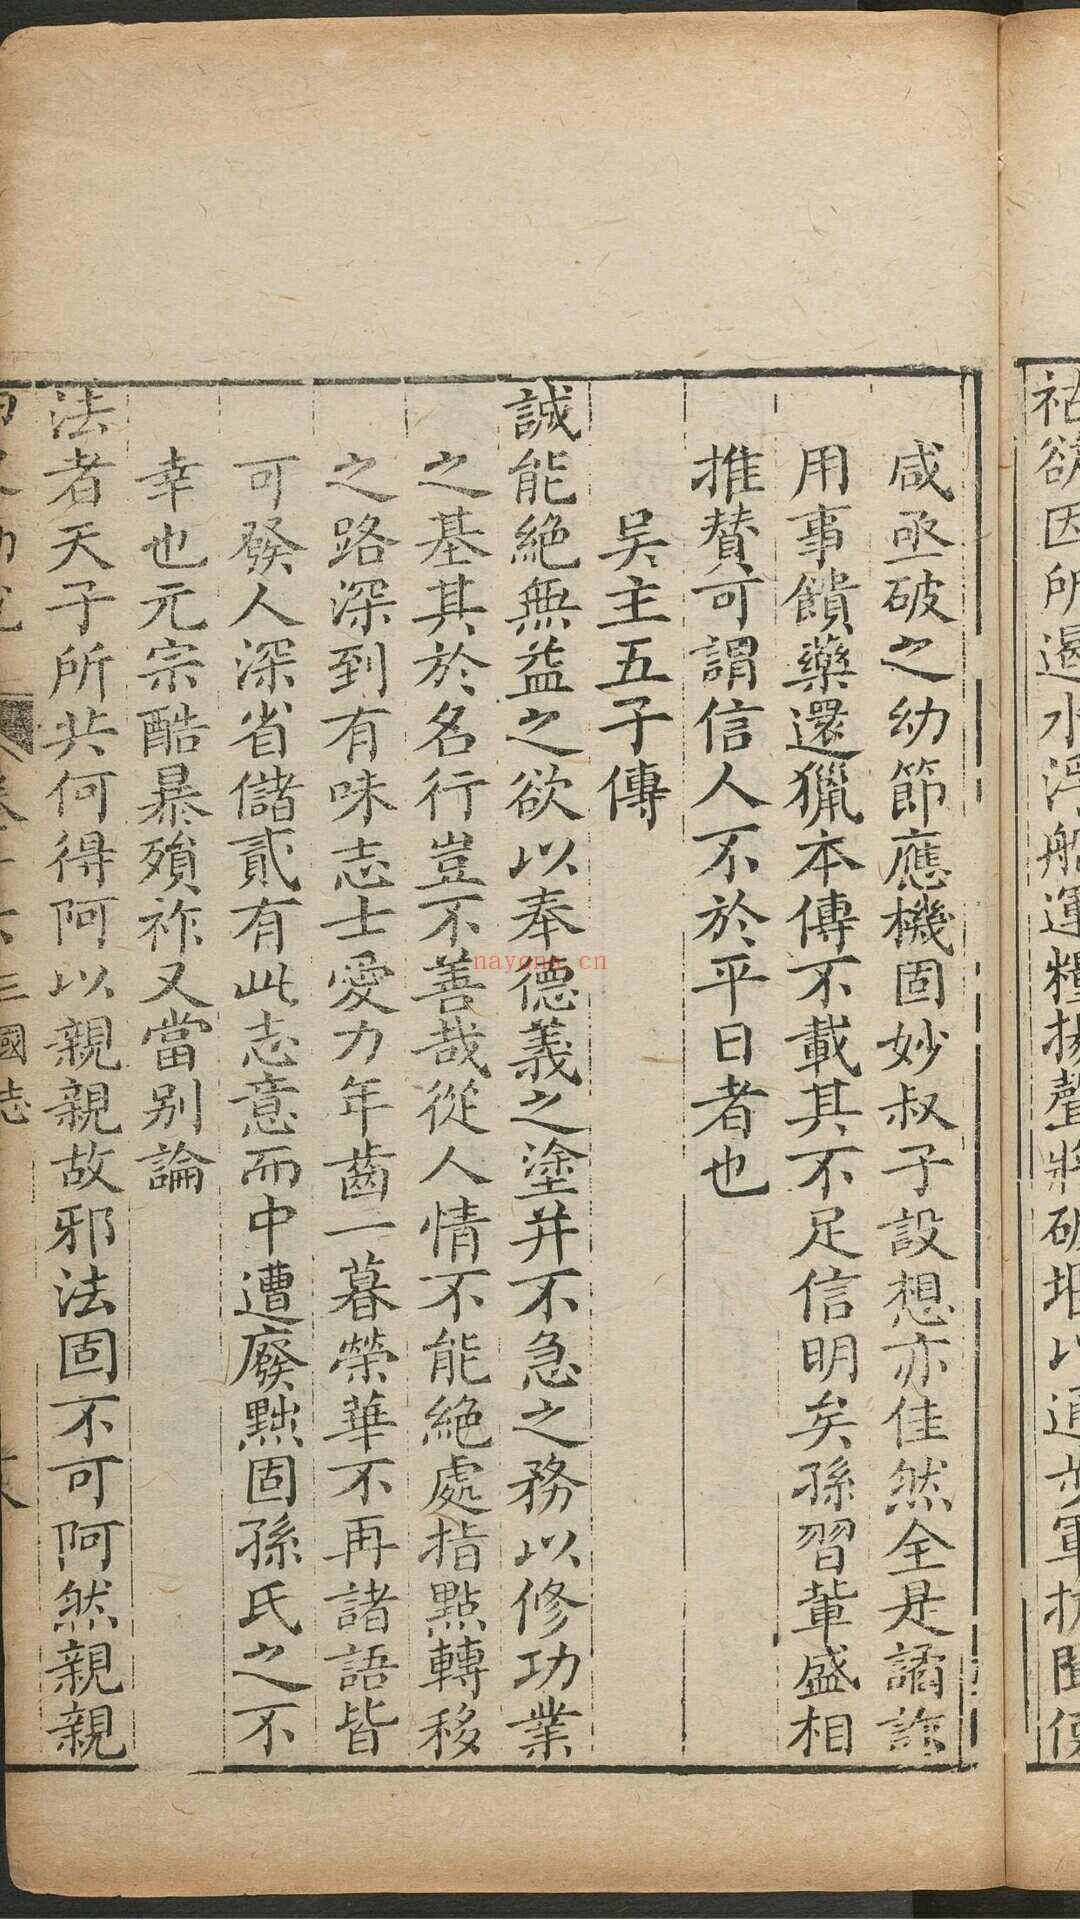 祜欲因所遏水浮船運糧揚聲將破堰以通步軍抗聞使
咸亟破之幼節應機固妙叔子設想亦佳然全是譎詐
用事饋藥還獵本傳不載其不足信明矣孫習輩盛相
推賛可謂信人不於平日者也
吳主五子傳
誠能絶無益之欲以奉德義之塗并不急之務以修功業
之基其於名行豈不善哉從人情不能絶處指點轉移
之路深到有味志士愛力年齒一暮榮華不再諸語皆
可發人深省儲貳有此志意而中遭廢黜固孫氏之不
幸也元宗酷暴殞祚又當别論
法者天子所共何得阿以親親故邪法固不可阿然親親
三國志
nayona.cn